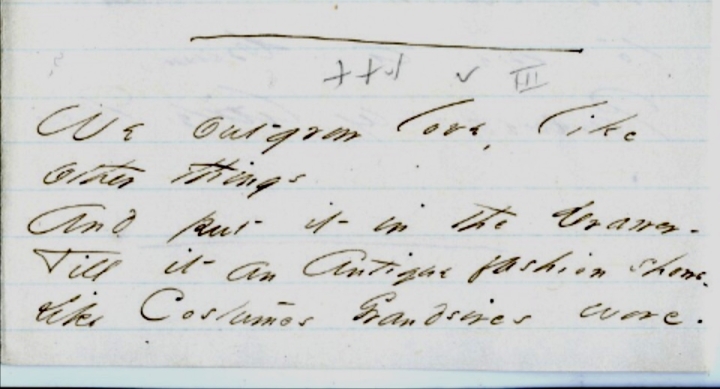 III
We outgrow love, like
other things
And put it in the Drawer -
Till it an Antique fashion shows.
Like Costumes Grandsires wore.